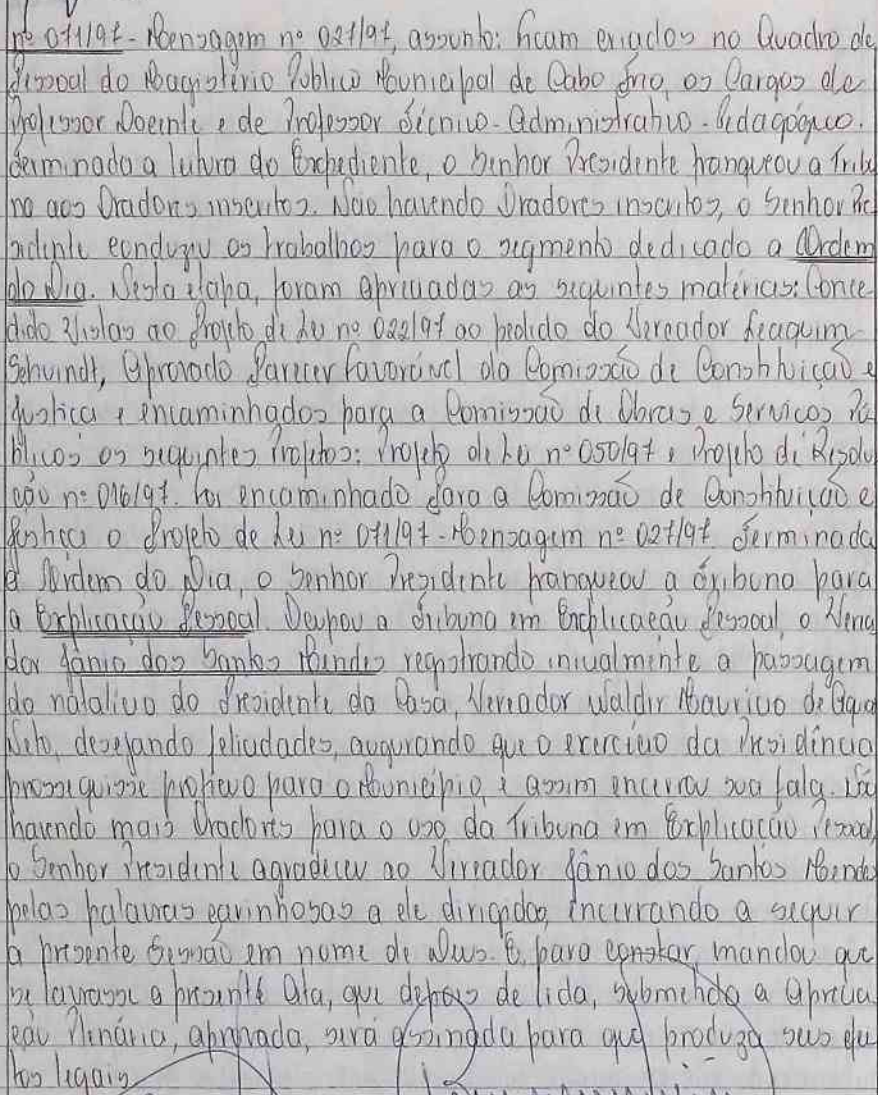 nº 071/97 - Mensagem nº 027/97, assunto: Ficam criados no Quadro de
Pessoal do Magistério Público Municipal de Cabo Frio, os Cargos de
Professor Docente e de Professor Técnico-Administrativo-Pedagógico.
Terminada a leitura do Expediente, o Senhor Presidente franqueou a Tribu
na aos Oradores inscritos. Não havendo Oradores inscritos, o Senhor Pre
sidente conduziu os trabalhos para o segmento dedicado a Ordem
do Dia. Nesta etapa, foram apreciadas as seguintes matérias: Conce
dido Vistas ao Projeto de Lei nº 022/97 ao pedido do Vereador Leaquim
Schuindt, Aprovado Parecer favorável da Comissão de Constituição e
Justiça e encaminhados para a Comissão de Obras e Serviços Pú
blicos os seguintes Projetos: Projeto de Lei nº 050/97 e Projeto de Resolu
ção nº 016/97. Foi encaminhado para a Comissão de Constituição e
Justiça o Projeto de Lei nº 071/97 - Mensagem nº 027/97. Terminada
a Ordem do Dia, o Senhor Presidente franqueou a Tribuna para
a Explicação Pessoal. Ocupou a Tribuna em Explicação Pessoal, o Verea
dor Jânio dos Santos Mendes registrando inicialmente a passagem
do natalício do Presidente da Casa, Vereador Waldir Maurício de Aguiar
Neto, desejando felicidades, augurando que o exercício da Presidência
prosseguisse profícuo para o Município, e assim encerrou sua fala. Não
havendo mais Oradores para o uso da Tribuna em Explicação Pessoal,
o Senhor Presidente agradeceu ao Vereador Jânio dos Santos Mendes
pelas palavras carinhosas a ele dirigidas, encerrando a seguir
a presente Sessão em nome de Deus. E, para constar, mandou que
se lavrasse a presente Ata, que depois de lida, submetida a Aprecia
ção Plenária, aprovada, será assinada para que produza seus efei
tos legais